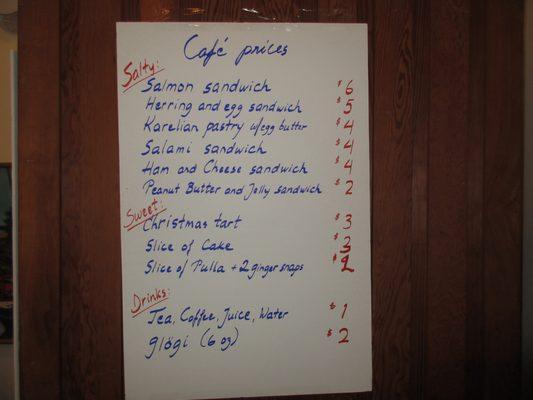 Café prices
Salty:
Salmon sandwich $6
Herring and egg sandwich $5
Karelian pastry w/egg butter $4
Salami sandwich $4
Ham and Cheese sandwich $4
Peanut Butter and Jelly sandwich $2
Sweet:
Christmas tart $3
Slice of Cake $3
Slice of Pulla + 2 ginger snaps $2
Drinks:
Tea, Coffee, Juice, Water $1
glögi (6 oz) $2